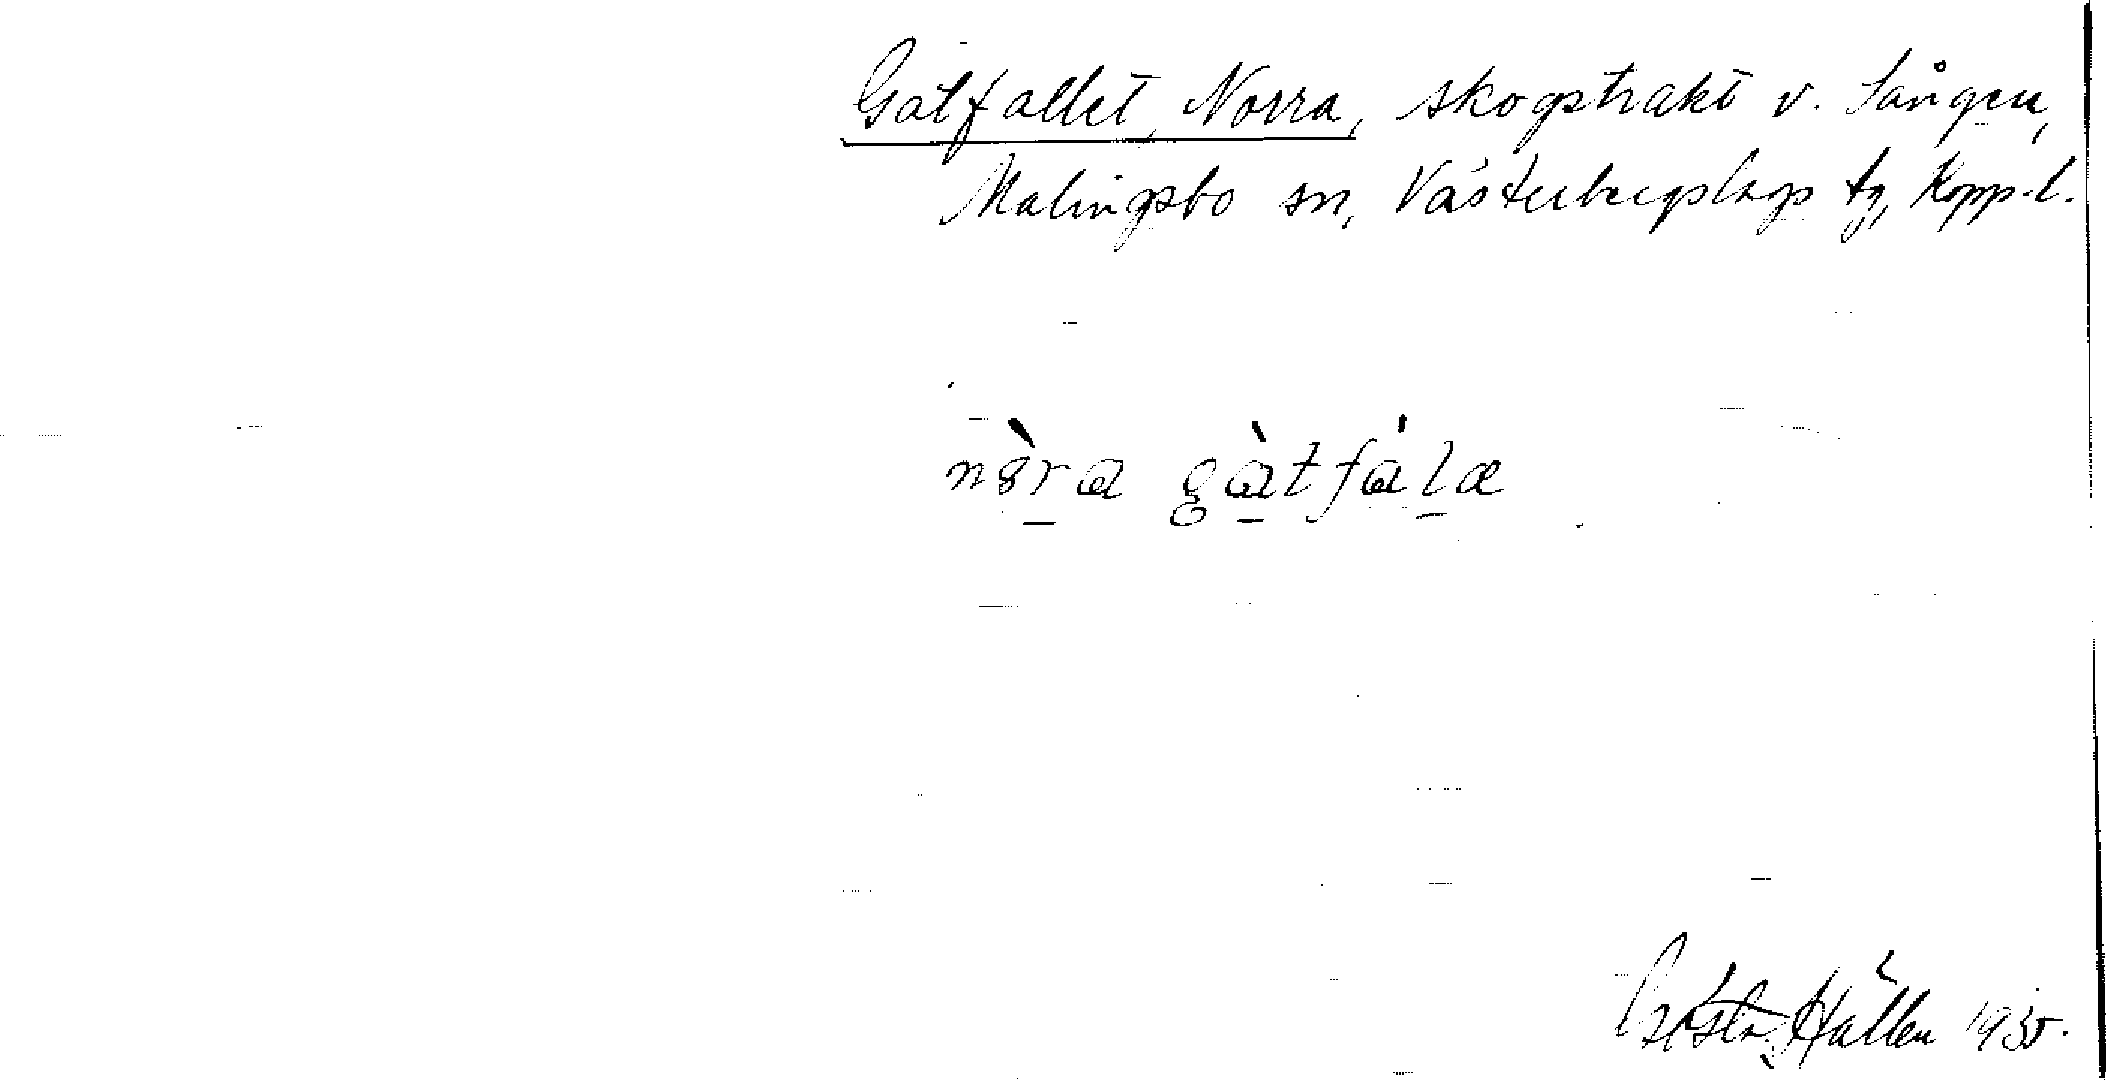 Gatfallet, Norra, skogstrakt v. Sången,
Malingsbo sn, Västerbergslags tg, Kopp. l.
nòra gàtfála
Gösta Hållén 1935.